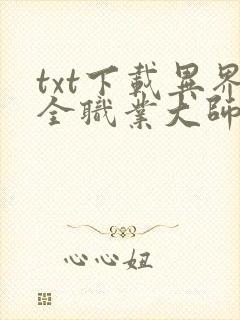 txt下載異界
全職業大師
心心妞